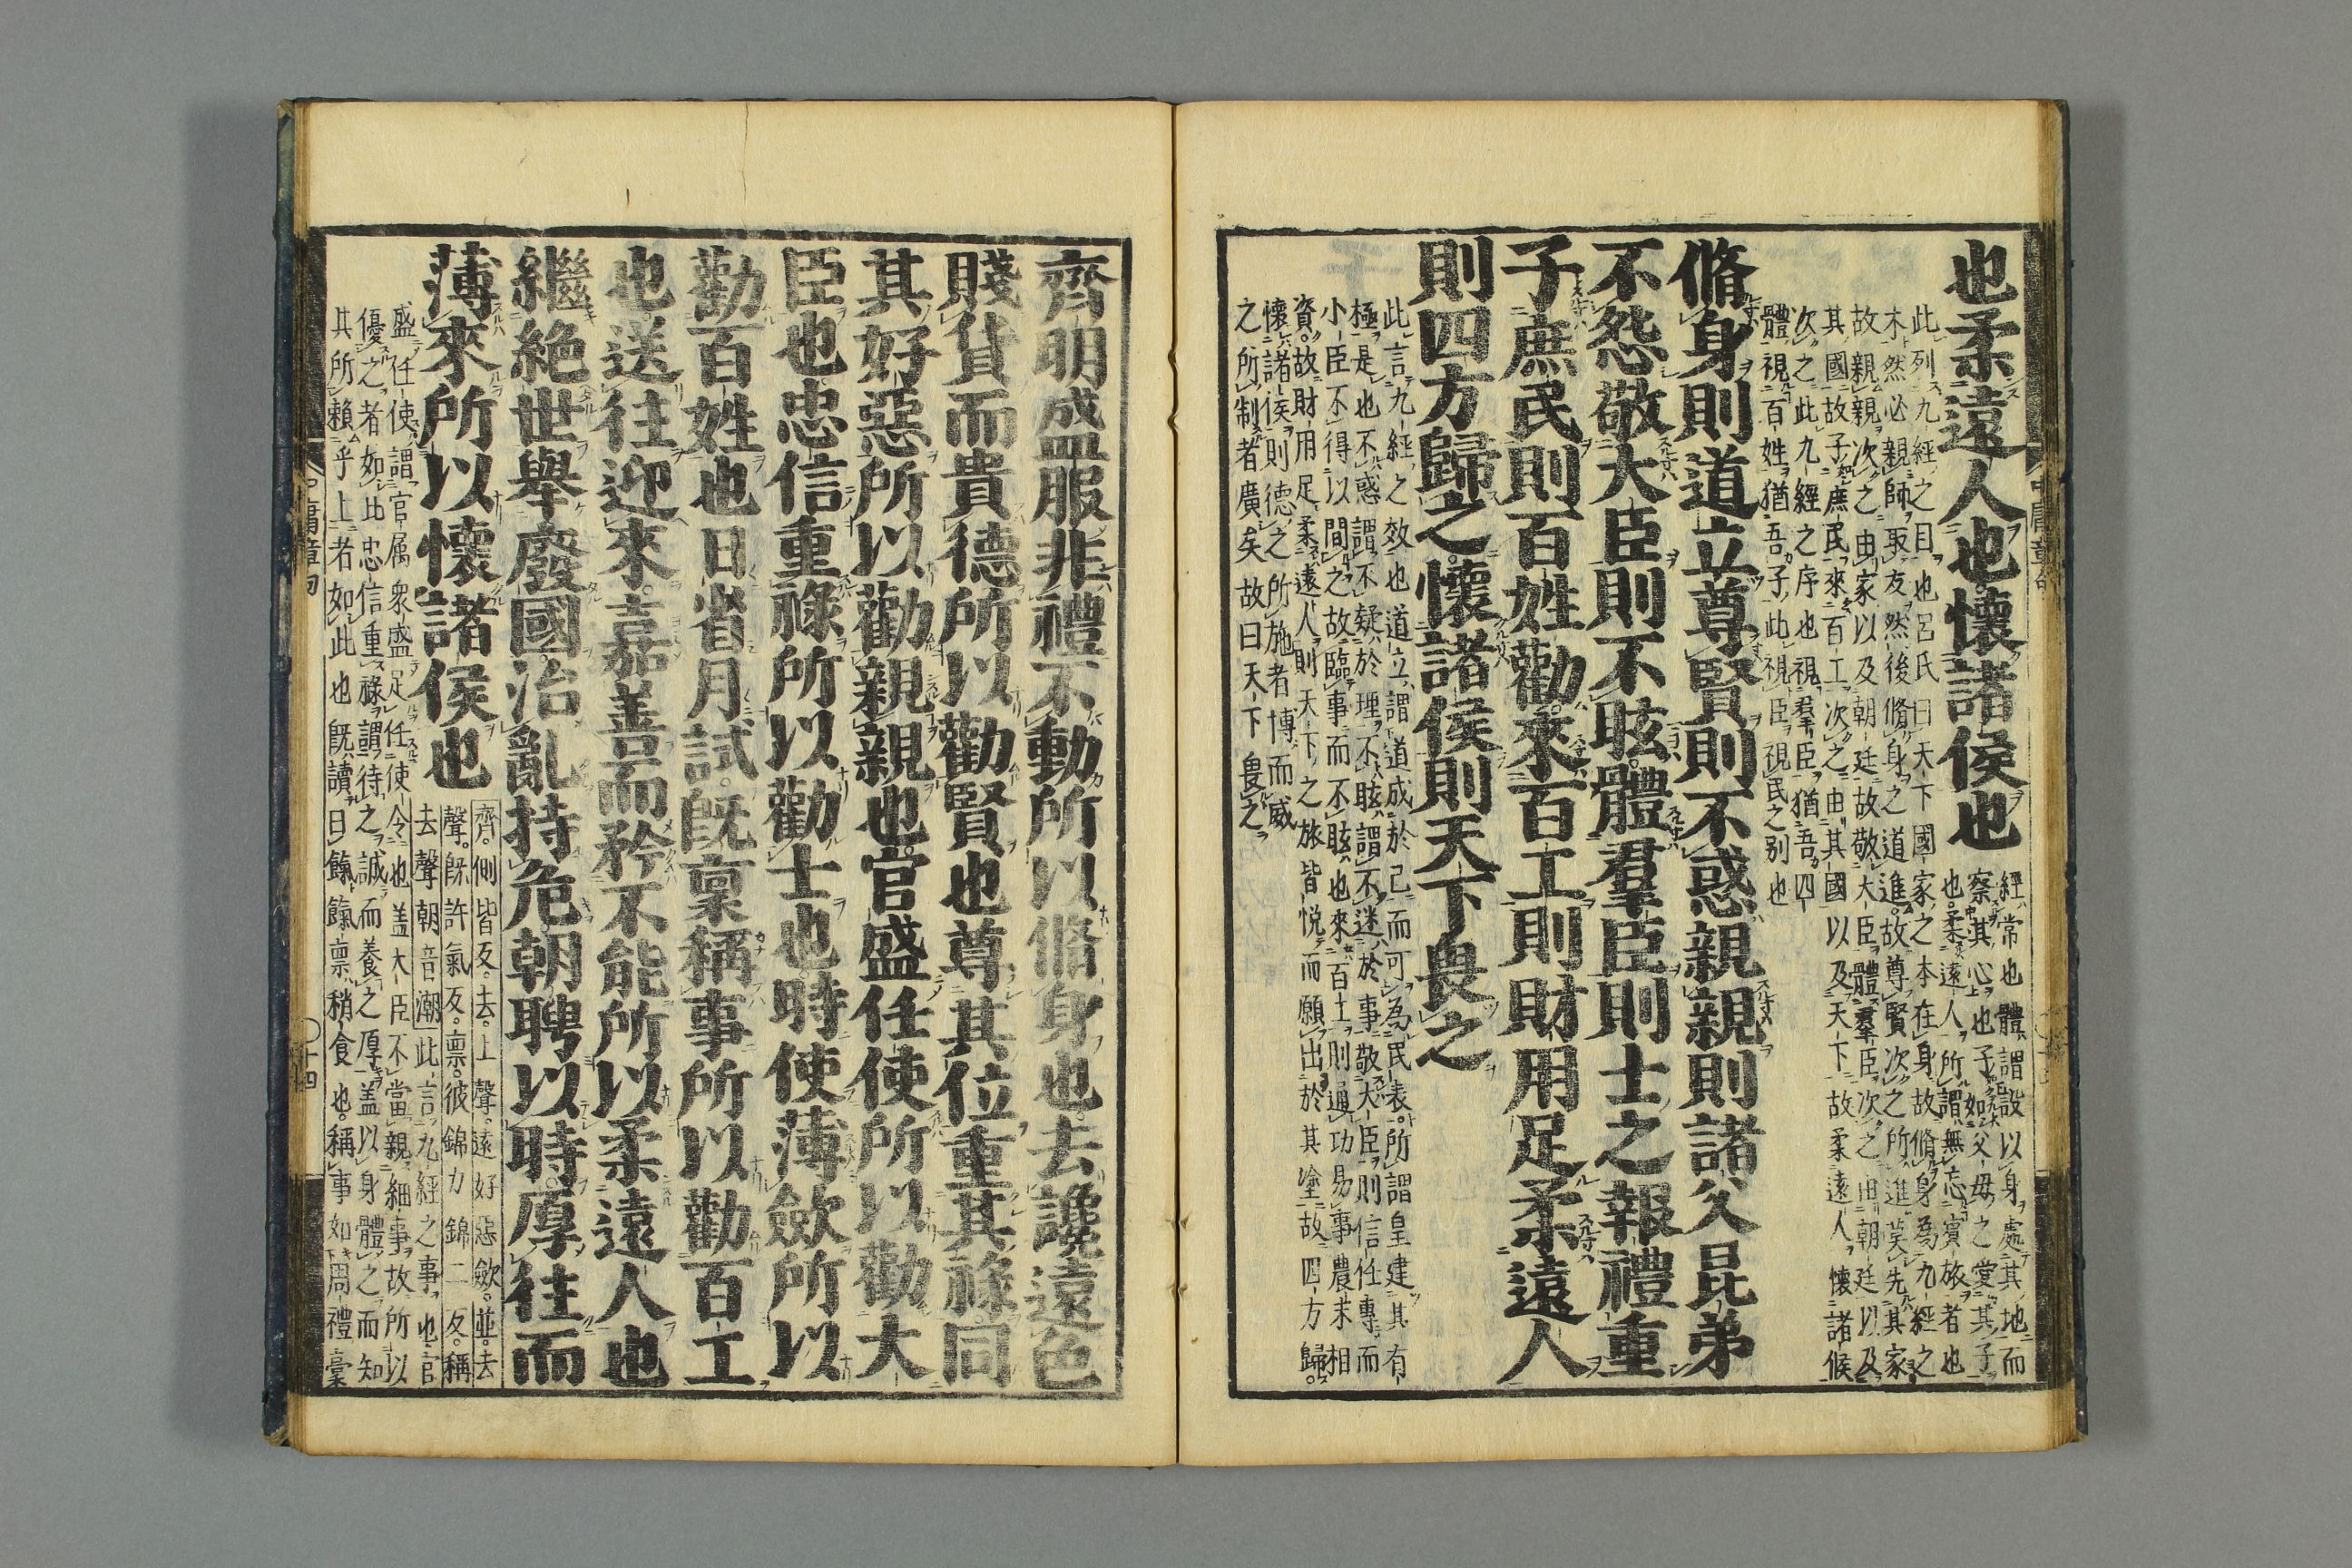 也柔遠人也懷諸侯也
經常也體謂設以身處其地而
察其心也子如父母之愛其子
也柔遠人所謂無忘賓旅者也
此列九經之目也呂氏曰天下國家之本在身故脩身為九經之
本然必親師取友然後脩身之道進故尊賢次之道所進莫先其家
故親親次之由家以及朝廷故敬大臣體羣臣次之由朝廷以及
其國故子庶民來百工次之由其國以及天下故柔遠人懷諸侯
次之此九經之序也視羣臣猶吾四
體視百姓猶吾子此視臣視民之別也
脩身則道立尊賢則不惑親親則諸父昆弟
不怨敬大臣則不眩體羣臣則士之報禮重
子庶民則百姓勸來百工則財用足柔遠人
則四方歸之懷諸侯則天下畏之
此言九經之效也道立謂道成於己而可為民表所謂皇建其有
極是也不惑謂不疑於理不眩謂不迷於事敬大臣則信任專而
小臣不得以間之故臨事而不眩也來百工則通功易事農末相
資故財用足柔遠人則天下之旅皆悅而願出於其塗故四方歸
懷諸侯則德之所施者博而威
之所制者廣矣故曰天下畏之
齊明盛服非禮不動所以脩身也去讒遠色
賤貨而貴德所以勸賢也尊其位重其祿同
其好惡所以勸親親也官盛任使所以勸大
臣也忠信重祿所以勸士也時使薄斂所以
勸百姓也日省月試既稟稱事所以勸百工
也送往迎來嘉善而矜不能所以柔遠人也
繼絶世舉廢國治亂持危朝聘以時厚往而
薄來所以懷諸侯也
齊側皆反去上聲遠好惡斂並去
聲既許氣反稟彼錦力錦二反稱
去聲朝音潮此言九經之事也官
盛任使謂官属衆盛足任使令也盖大臣不當親細事故所以
優之者如此忠信重祿謂待之誠而養之厚盖以身體之而知
其所賴乎上者如此也既讀曰餼餼稟稍食也稱事如周禮稾
中庸章句
中庸章句
十四